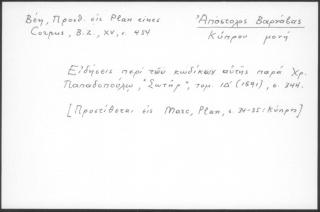 Βέη, Προσθ. εἰς Plan eines
Corpus, B.Z., XV, σ. 484
Ἀπόστολος Βαρνάβας
Κύπρου μονή
Εἰδήσεις περὶ τῶν κωδίκων αὐτῆς παρὰ Χρ.
Παπαδοπούλῳ, "Σωτήρ", τομ. ΙΔ' (1891), σ. 344.
[Προστίθεται εἰς Marc, Plan, σ. 34-35: Κύπρος]